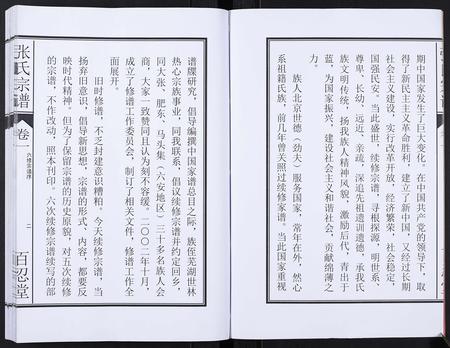 期中国家发生了巨大变化。在中国共产党的领导下，取
得了新民主主义革命胜利，建立了新中国，又经过长期
社会主义建设，实行改革开放，经济繁荣，社会稳定，
国强民安。当此盛世，续修宗谱，寻根探源，明世系、
尊卑、长幼、远近、亲疏，深追先祖遗训遗德，承我氏
族文明传统，扬我族人精神风貌，激励后代，青出于
蓝，为国家振兴、建设社会主义和谐社会，贡献绵薄之
力。
族人北京世德（劲夫）服务国家，常年在外，然心
系祖籍氏族，前几年曾关照过续修家谱。当此国家重视
谱牒研究，倡导编撰中国家谱总目之际，族侄芜湖世林
热心宗族事业，同我联系，倡议续修宗谱并约定回乡，
同大张、肥东、马头集（六安地区）三十多名族人会
商，大家一致赞同且认为刻不容缓。二〇〇二年十月，
成立了修谱工作委员会，制订了相关文件，修谱工作全
面展开。
旧时修谱，不乏封建意识糟粕。今天续修宗谱，当
扬弃旧意识，倡导新思想，宗谱的形式、内容，都要反
映时代精神。但为了保留宗谱的历史原貌，对五次续修
的宗谱，不作改动，照本刊印。六次续修宗谱续写的部
张氏宗谱
卷一
百忍堂